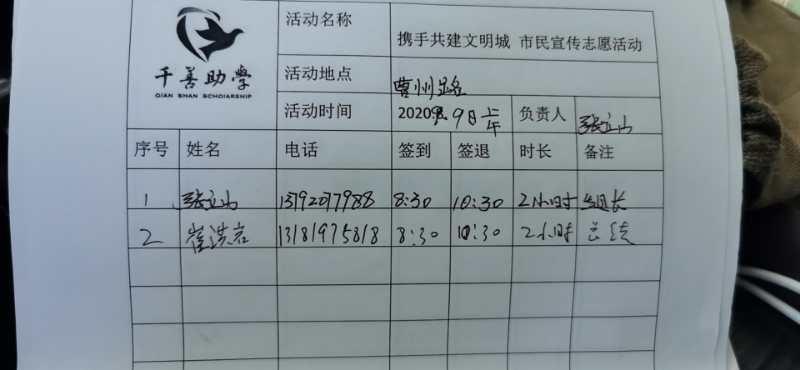 千善助学
QIAN SHAN SCHOLARSHIP
活动名称 携手共建文明城 市民宣传志愿活动
活动地点 曹州路
活动时间 2020 9日上午 负责人 张立山
序号 姓名 电话 签到 签退 时长 备注
1 张立山 8:30 10:30 2小时 组长
2 崔洪岩 13181975818 8:30 10:30 2小时